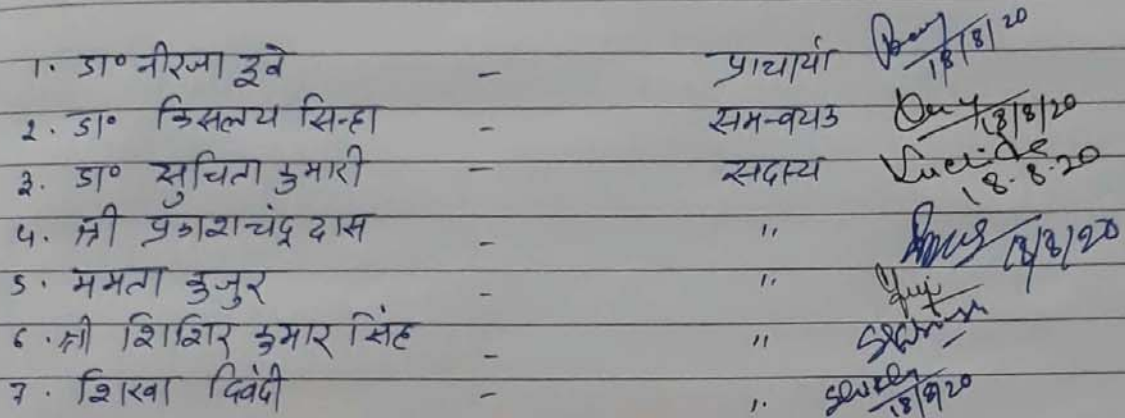 1. डा० नीरजा दुबे - प्राचार्या 18/8/20
2. डा० किसलय सिन्हा - समन्वयक 18/8/20
3. डा० सुचिता कुमारी - सदस्य 18.8.20
4. श्री प्रकाशचंद्र दास - " 18/8/20
5. ममता कुजुर - "
6. श्री शिशिर कुमार सिंह - "
7. शिखा द्विवेदी - " 18/8/20